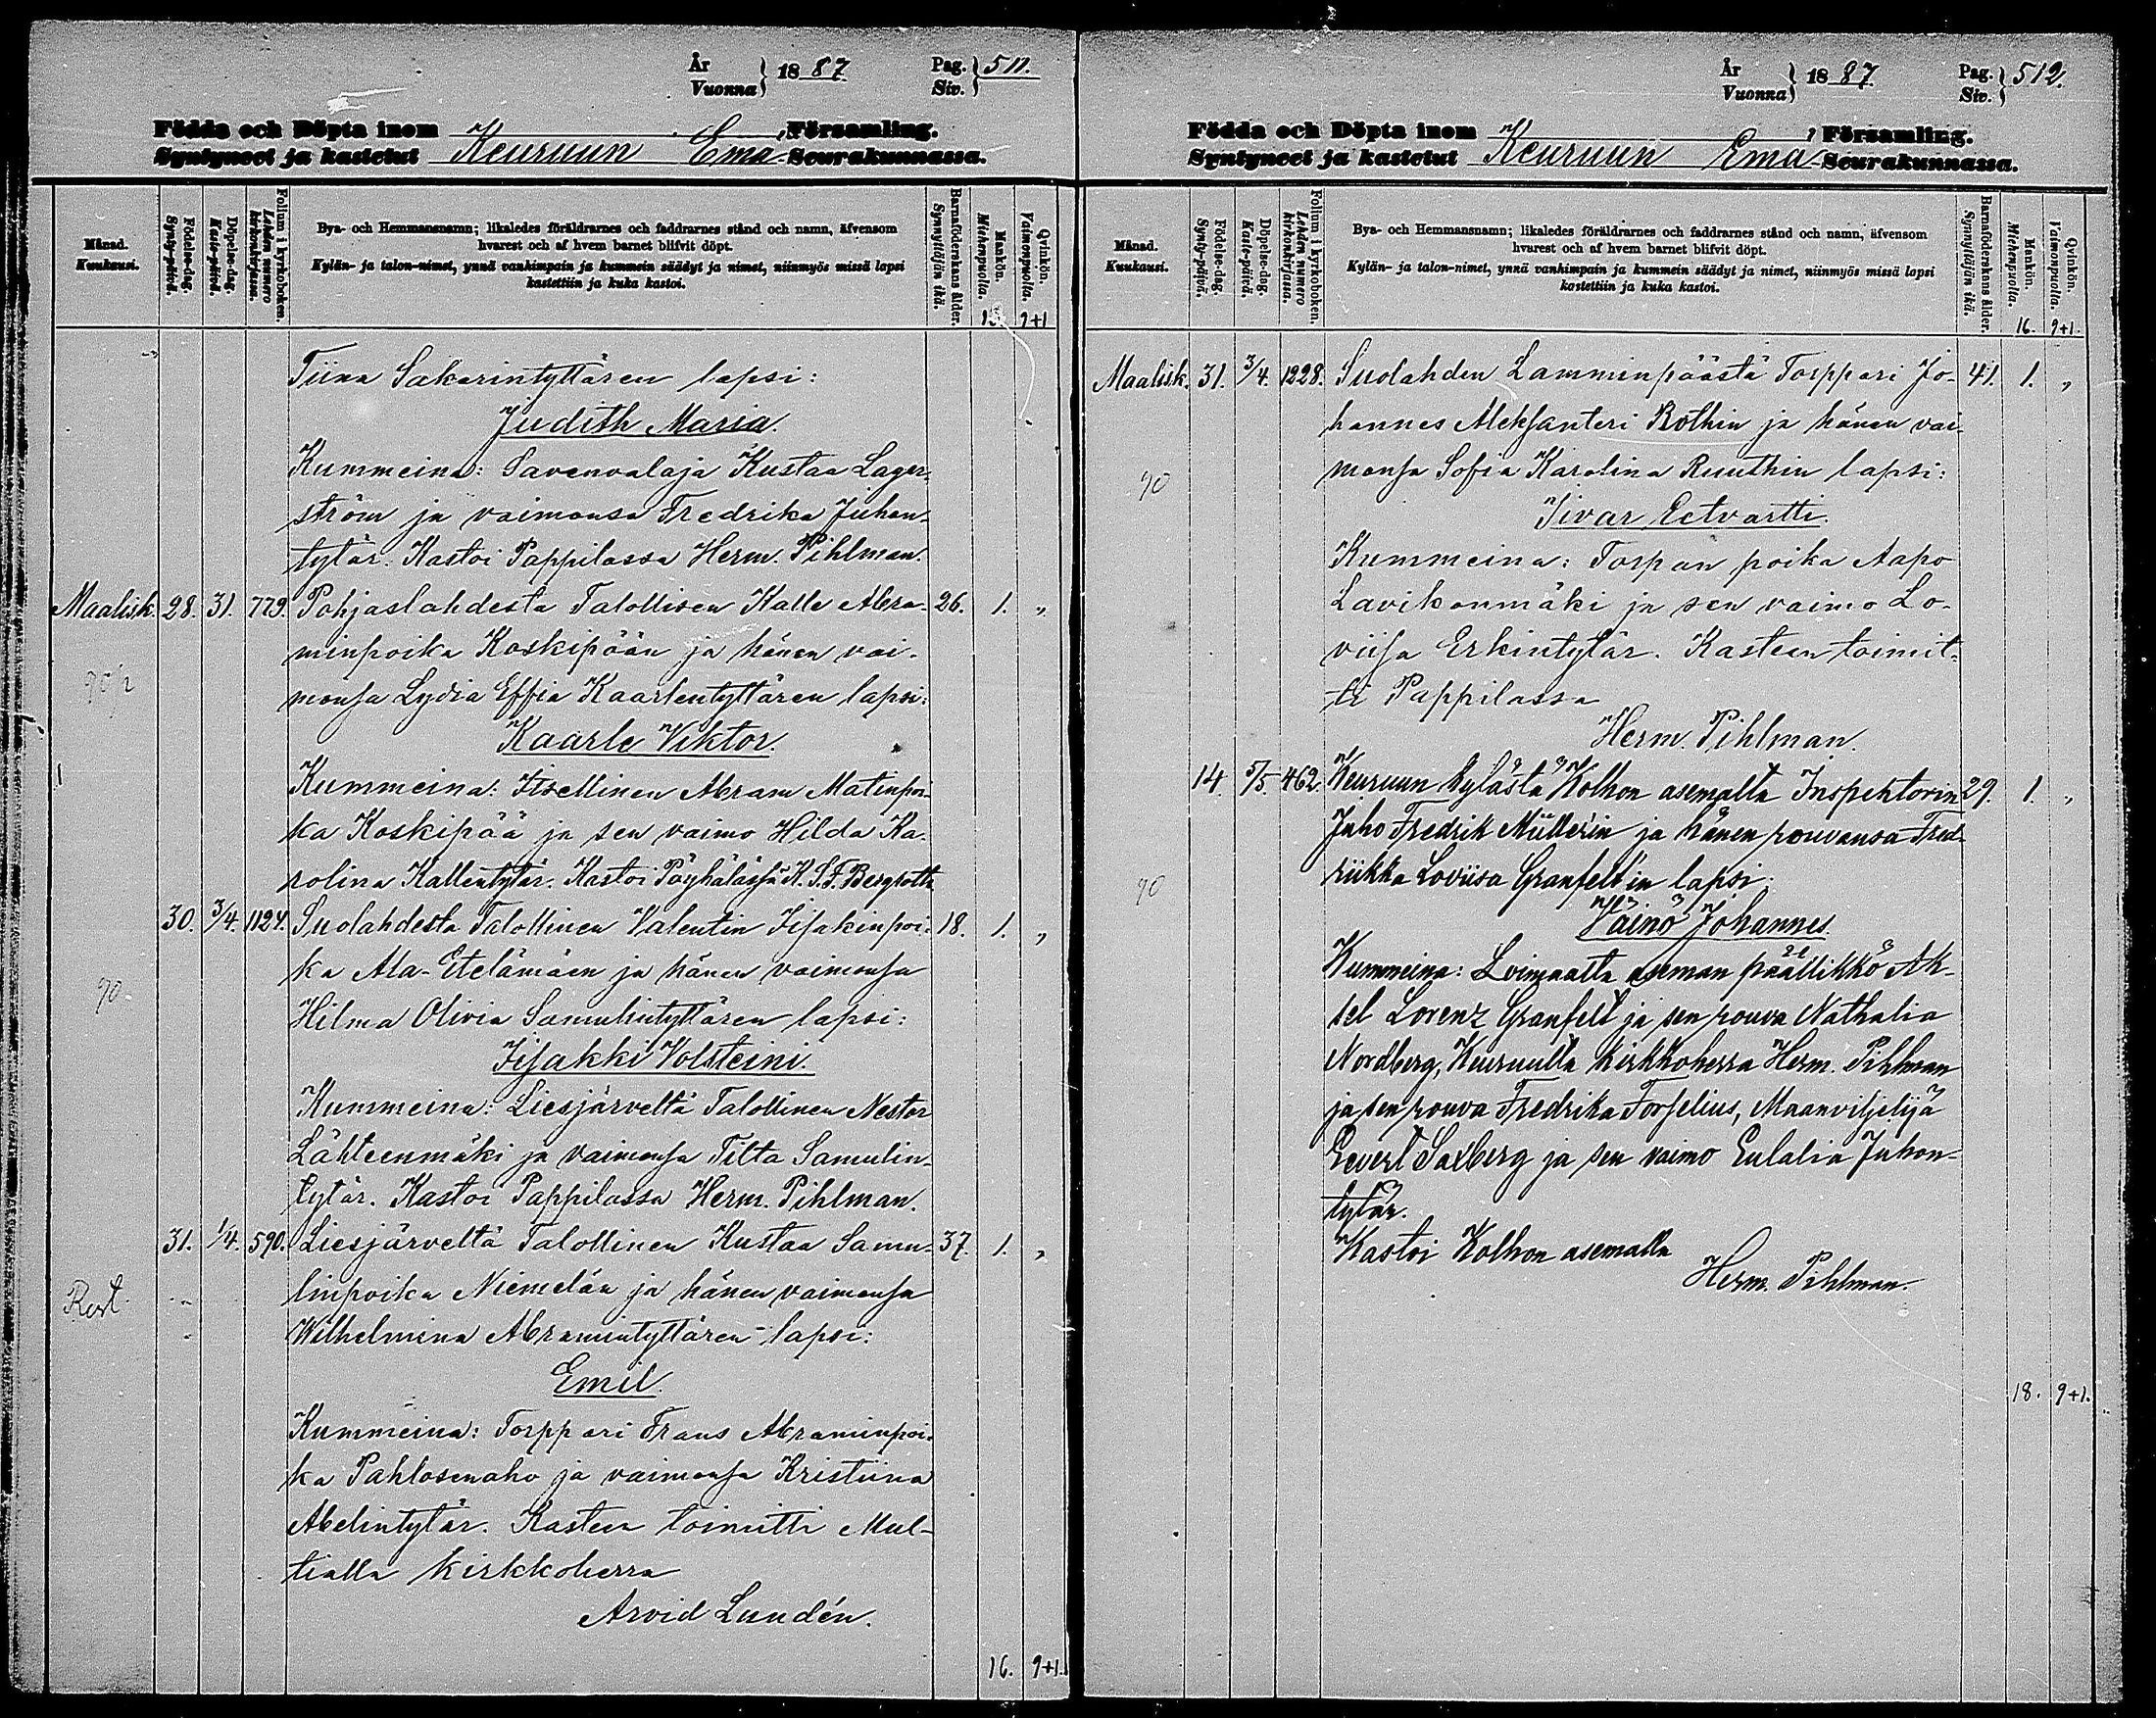 År
Vuonna } 1887 Pag.
Siv. } 511.
Födda och Döpta inom Församling.
Syntyneet ja kastetut Keuruun Emä Seurakunnassa.
Månad.
Kuukausi.
Födelse-dag.
Synty-päivä.
Döpelse-dag.
Kaste-päivä.
Folium i kyrkoboken.
Lehden numero kirkonkirjassa.
Bya- och Hemmansnamn; likaledes föräldrarnes och faddrarnes stånd och namn, äfvensom
hvarest och af hvem barnet blifvit döpt.
Kylän- ja talon-nimet, ynnä vanhimpain ja kummein säädyt ja nimet, niinmyös missä lapsi
kastettiin ja kuka kastoi.
Barnaföderskans ålder.
Synnyttäjän ikä.
Mankön.
Miehenpuolia.
Qvinkön.
Vaimonpuolia.
9+1
Tiina Sakarintyttären lapsi:
Judith Maria.
Kummeina: Savenvalaja Kustaa Lager-
ström ja vaimonsa Fredrika Juhon-
tytär. Kastoi Pappilassa Herm. Pihlman.
Maalisk. 28. 31. 779. Pohjaslahdesta Talollisen Kalle Abra- 26. 1. „
minpoika Koskipään ja hänen vai-
monsa Lydia Effia Kaarlentyttären lapsi:
Kaarle Viktor.
Kummeina: Itsellinen Abram Matinpoi-
ka Koskipää ja sen vaimo Hilda Ka-
rolina Kallentytär. Kastoi Pöyhälässä K. S. F. Bergroth
30. 3/4. 1124. Suolahdesta Talollinen Valentin Iisakinpoi- 18. 1. „
ka Ala-Etelämäen ja hänen vaimonsa
90.
Hilma Olivia Samulintyttären lapsi:
Iisakki Volsteini.
Kummeina: Liesjärveltä Talollinen Nestor
Lähteenmäki ja vaimonsa Tilta Samulin-
tytär. Kastoi Pappilassa Herm. Pihlman.
31. 1/4. 590. Liesjärveltä Talollinen Kustaa Samu- 37. 1. „
linpoika Niemelän ja hänen vaimonsa
Wilhelmina Abramintyttären lapsi:
Emil.
Kummeina: Torppari Frans Abraminpoi-
ka Pahlosenaho ja vaimonsa Kristiina
Abelintytär. Kasteen toimitti Mul-
tialla kirkkoherra
Arvid Lundén.
16. 9+1.
År
Vuonna } 1887 Pag.
Siv. } 512.
Födda och Döpta inom Församling.
Syntyneet ja kastetut Keuruun Emä Seurakunnassa.
Månad.
Kuukausi.
Födelse-dag.
Synty-päivä.
Döpelse-dag.
Kaste-päivä.
Folium i kyrkoboken.
Lehden numero kirkonkirjassa.
Bya- och Hemmansnamn; likaledes föräldrarnes och faddrarnes stånd och namn, äfvensom
hvarest och af hvem barnet blifvit döpt.
Kylän- ja talon-nimet, ynnä vanhimpain ja kummein säädyt ja nimet, niinmyös missä lapsi
kastettiin ja kuka kastoi.
Barnaföderskans ålder.
Synnyttäjän ikä.
Mankön.
Miehenpuolia.
Qvinkön.
Vaimonpuolia.
16. 9+1.
Maalisk. 31. 3/4. 1228. Suolahden Lamminpäästä Torppari Jo- 41. 1. „
hannes Aleksanteri Rothin ja hänen vai-
monsa Sofia Karolina Ruuthin lapsi:
90
Iivar Eetvartti.
Kummeina: Torpan poika Aapo
Lavikonmäki ja sen vaimo Lo-
viisa Erkintytär. Kasteen toimit-
ti Pappilassa
Herm. Pihlman.
14. 5/5. 462. Keuruun kylästä Kolhon asemalta Inspehtorin 29. 1. „
Juho Fredrik Müllerin ja hänen rouvansa Fred-
riikka Loviisa Granfelt'in lapsi:
90
Väinö Johannes.
Kummeina: Loimaalta aseman päällikkö Ak-
sel Lorenz Granfelt ja sen rouva Nathalia
Nordberg, Keuruulta kirkkoherra Herm. Pihlman
ja sen rouva Fredrika Forselius, Maanviljelijä
Eevert Saxberg ja sen vaimo Eulalia Juhon-
tytär.
Kastoi Kolhon asemalla
Herm. Pihlman.
18. 9+1.